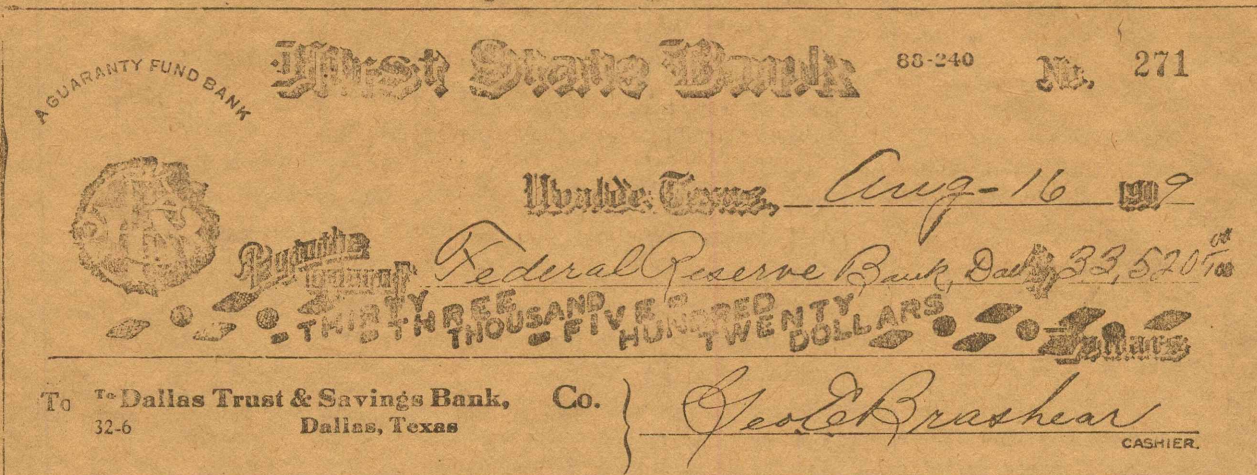 A GUARANTY FUND BANK
First State Bank 88-240 No. 271
Uvalde, Texas, Aug-16 1919
Pay to the order of Federal Reserve Bank, Dallas $33,520 00/100
THIRTY THREE THOUSAND FIVE HUNDRED TWENTY DOLLARS Dollars
To To Dallas Trust & Savings Bank, Co.
32-6 Dallas, Texas
Geo. E Brashear
CASHIER.